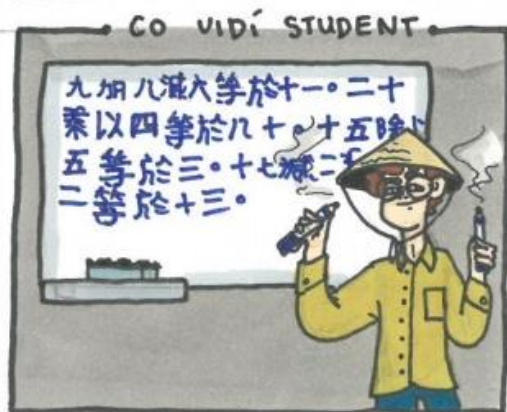 CO VIDÍ STUDENT
九加八減六等於十一。二十
乘以四等於八十。十五除以
五等於三。十七減二減
二等於十三。